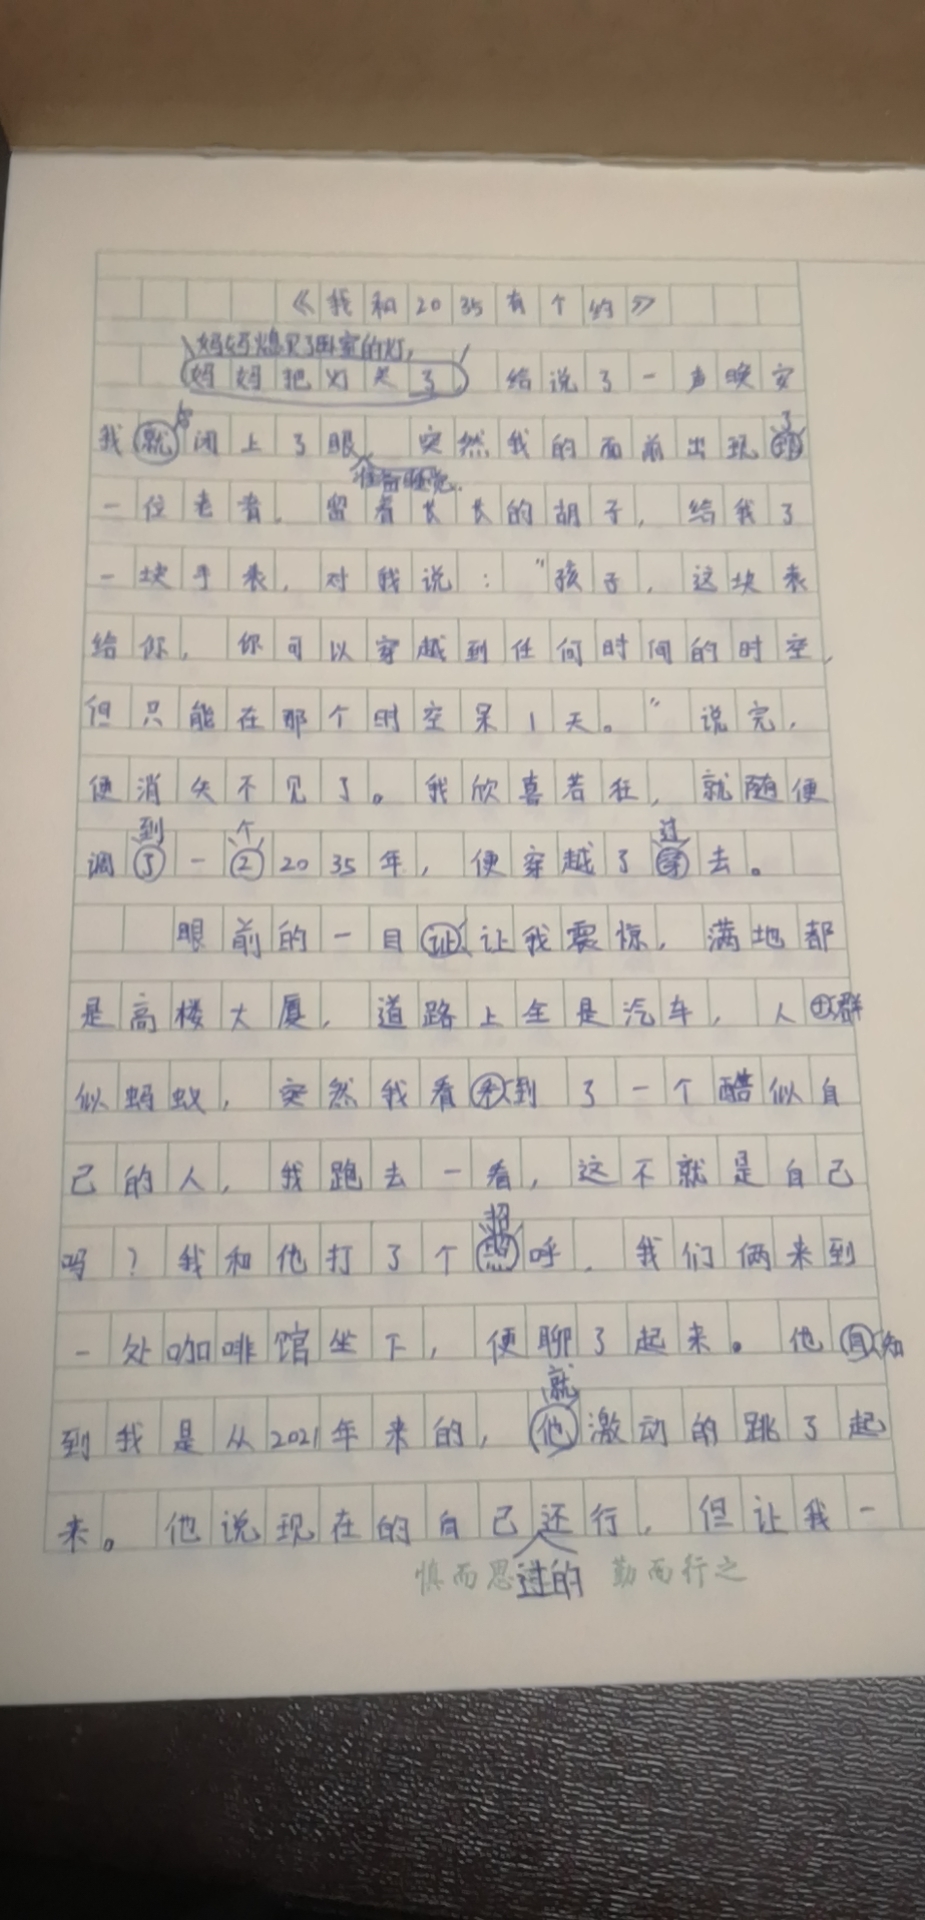 《我和2035有个约》
妈妈熄灭了卧室的灯，
妈妈把灯关了 给说了一声晚安
我就闭上了眼 突然我的面前出现了
准备睡觉.
一位老者，留着长长的胡子，给我了
一块手表，对我说："孩子，这块表
给你，你可以穿越到任何时间的时空，
但只能在那个时空呆1天。"说完，
便消失不见了。我欣喜若狂，就随便
到 个 过
调了一2 2035年，便穿越了 去。
眼前的一目 让我震惊，满地都
是高楼大厦，道路上全是汽车，人 群
似蚂蚁，突然我看 到了一个酷似自
己的人，我跑去一看，这不就是自己
招
吗？我和他打了个 呼，我们俩来到
一处咖啡馆坐下，便聊了起来。他 知
就
到我是从2021年来的，他激动的跳了起
来。他说现在的自己还行，但让我一
过的
慎而思 勤而行之